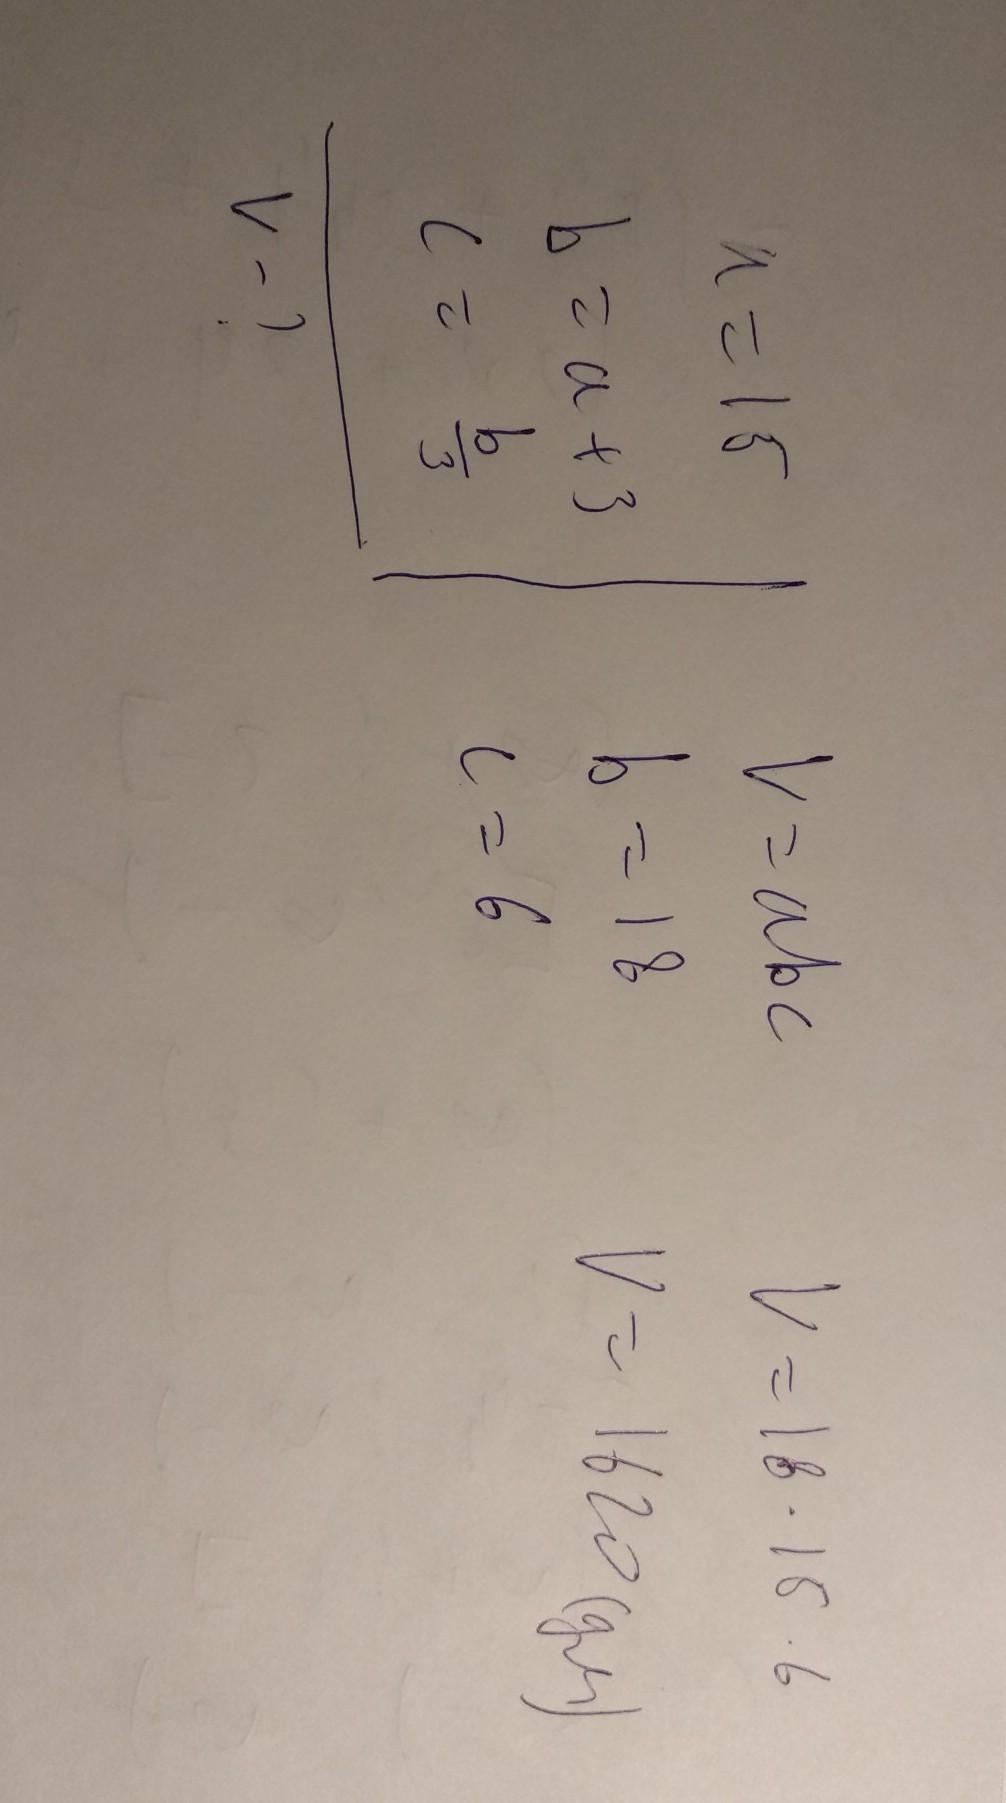 a = 15
b = a + 3
c = b/3
V - ?
V = abc
b = 18
c = 6
V = 18 · 15 · 6
V = 1620